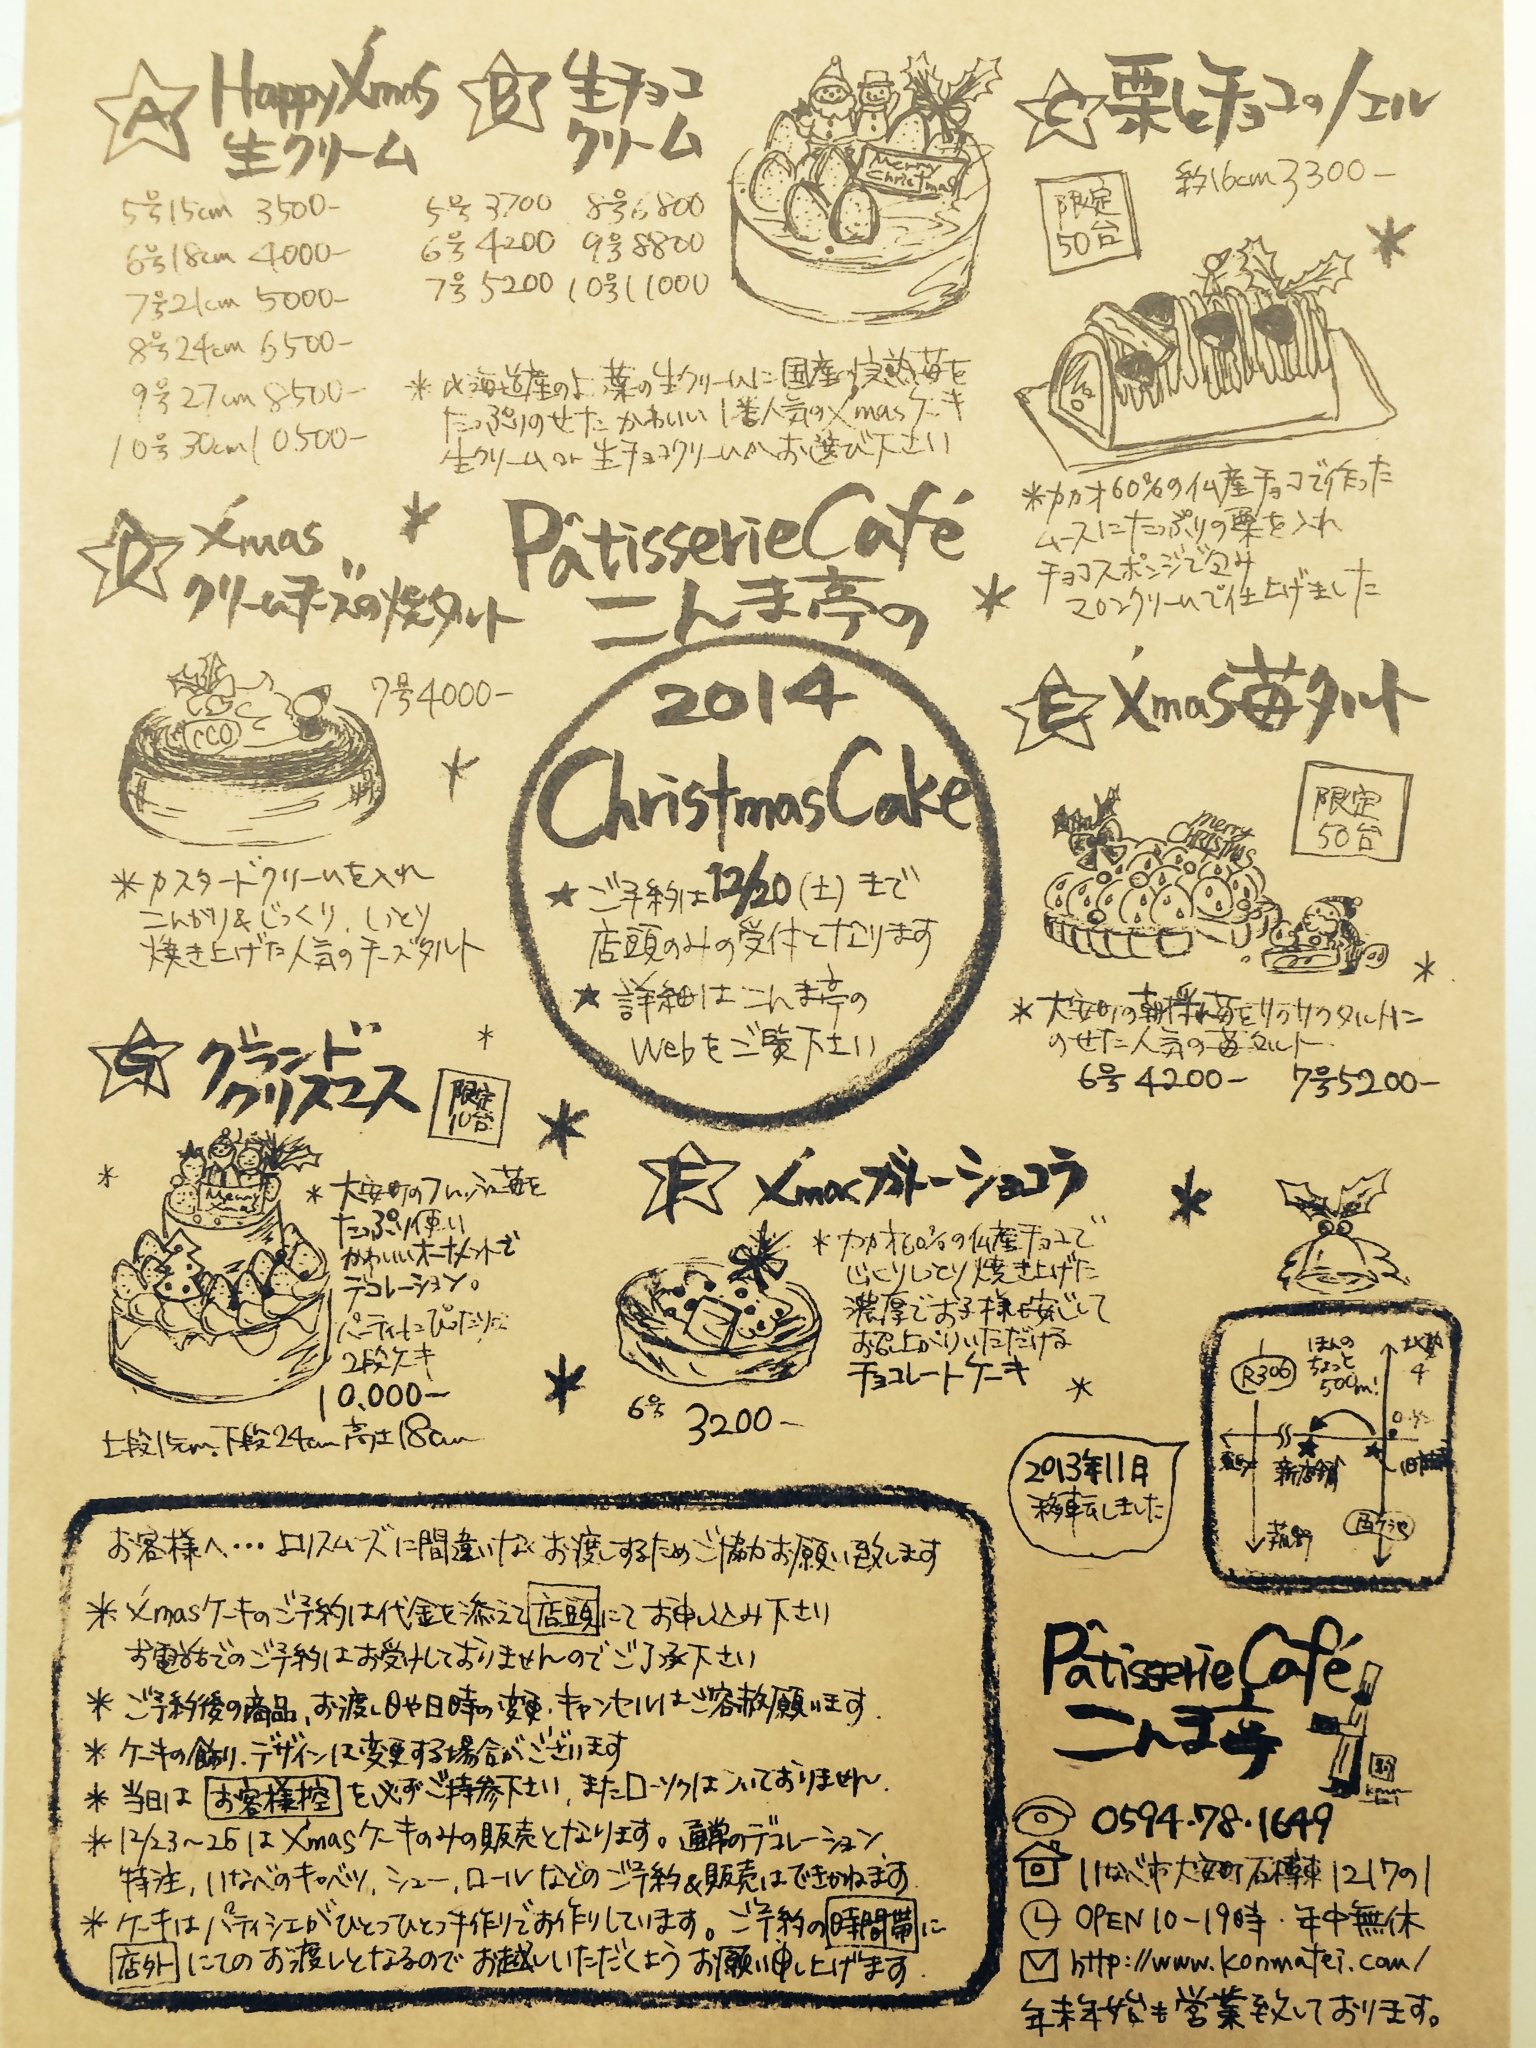 A Happy X'mas
生クリーム
5号15cm 3500-
6号18cm 4000-
7号21cm 5000-
8号24cm 6500-
9号27cm 8500-
10号30cm 10.500-
B 生チョコ
クリーム
5号 3700 8号 6800
6号 4200 9号 8800
7号 5200 10号 11000
Merry
Christmas
*北海道産のよつ葉の生クリームに国産完熟苺を
たっぷりのせたかわいい1番人気のX'masケーキ
生クリームor生チョコクリームからお選び下さい
C 栗とチョコのノエル
約16cm 3300-
限定
50台
*カカオ60%の仏産チョコで作った
ムースにたっぷりの栗を入れ
チョコスポンジで包み
マロンクリームで仕上げました
D X'mas
クリームチーズの焼タルト
7号4000-
*カスタードクリームを入れ
こんがり&じっくり、しっとり
焼き上げた人気のチーズタルト
PâtisserieCafé
こんま亭の
2014
ChristmasCake
★ご予約は12/20(土)まで
店頭のみの受付となります
★詳細はこんま亭の
Webをご覧下さい
E X'mas苺タルト
限定
50台
merry
CHRISTMAS
*大安町の朝採れ苺をサクサクタルトに
のせた人気の苺タルト
6号 4200- 7号5200-
G グランド
クリスマス
限定
10台
Merry
Xmas
*大安町のフレッシュ苺を
たっぷり使い
かわいいオーナメントで
デコレーション。
パーティーにぴったりな
2段ケーキ
10.000-
上段15cm、下段24cm 高さ18cm
F X'masガトーショコラ
*カカオ60%の仏産チョコで
じっくりしっとり焼き上げた
濃厚でお子様も安心して
お召し上がりいただける
チョコレートケーキ
6号 3200-
R306
ほんの
ちょっと
500m!
新店舗
2013年11月
移転しました
お客様へ… よりスムーズに間違いなくお渡しするためご協力お願い致します
*X'masケーキのご予約は代金を添えて店頭にてお申し込み下さい
お電話でのご予約はお受けしておりませんのでご了承下さい
*ご予約後の商品、お渡し日や日時の変更・キャンセルはご容赦願います.
*ケーキの飾り、デザインは変更する場合がございます
*当日はお客様控を必ずご持参下さい、またローソクはついておりません.
*12/23~25はX'masケーキのみの販売となります。通常のデコレーション,
特注,いなべのキャベツ,シュー,ロールなどのご予約&販売はできかねます.
*ケーキはパティシエがひとつひとつ手作りでお作りしています。ご予約の時間帯に
店外にてのお渡しとなるのでお越しいただくようお願い申し上げます.
PâtisserieCafé
こんま亭
0594・78・1649
いなべ市大安町石榑東1217の1
OPEN10-19時・年中無休
http://www.konmatei.com/
年末年始も営業致しております。